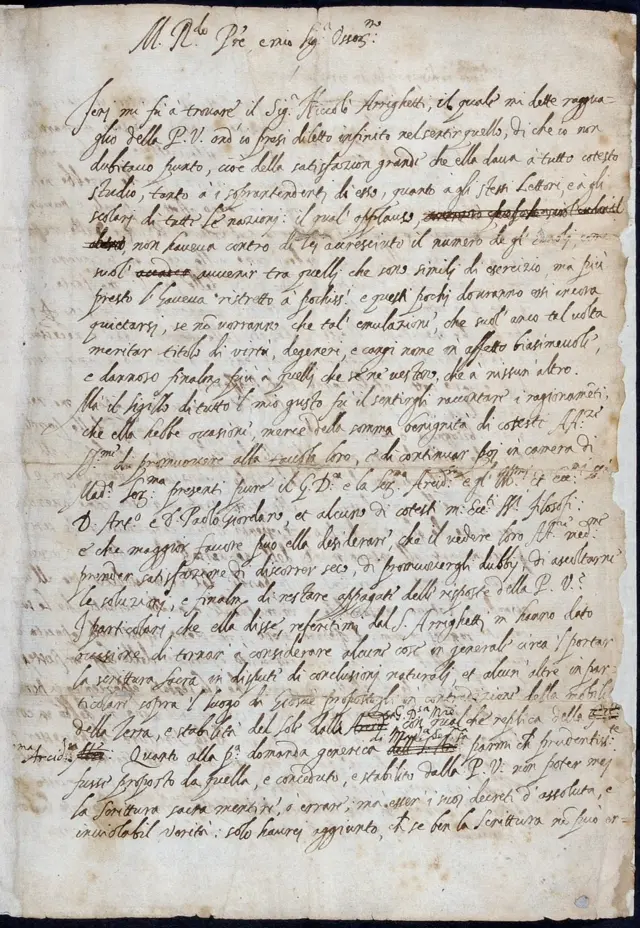 M. R.do P.re e mio Sig.r Osser.mo
Ieri mi fu a trovare il Sig.r Niccolò Arrighetti, il quale mi dette raggua-
glio della P. V. ond'io presi diletto infinito nel sentir quello, di che io non
dubitavo punto, cioè della satisfazion grande che ella dava à tutto cotesto
studio, tanto a i sobrantendenti di esso, quanto a gli stessi Lettori, e à gli
scolari di tutte le nazioni: il qual applauso,
non haveva contro di lei accresciuto il numero de gl' emoli, come
suol' avvenir tra quelli che sono simili di esercizio, ma più
presto l'haveva ristretto à pochiss.i e questi pochi dovranno essi ancora
quietarsi, se nõ vorranno che tal' emulazione, che suol' anco tal volta
meritar titolo di virtù, degeneri, e cangi nome in affetto biasimevole,
e dannoso finalm.e più à quelli che se ne vestono, che à nissun' altro.
Ma il sigillo di tutto il mio gusto fu il sentirgli raccontar i ragionamẽti,
che ella hebbe occasione, mercè della somma benignità di coteste A.ze
S.me di promuovere alla tavola loro, e di continuar poi in camera di
Mad.a Ser.ma presenti pure il G. D. e la Ser.ma Arcid.sa e gl' Ill.mi et Ecc.mi SS.ri
D. Ant.o e D. Paolo Giordano, et alcuni di cotesti m. Ecc.ti SS.i filosofi:
e che maggior favore può ella desiderare, che il veder loro Al.ze med.me
prender satisfazione di discorrer seco, di promuovergli dubbii, di ascoltarne
le soluzioni, e finalm.e di restare appagate delle risposte della P. V.a
I particolari che ella disse, referitimi dal S. Arrighetti, m'hanno dato
occasione di tornar à considerare alcune cose in generale circa 'l portar
la scrittura sacra in dispute di conclusioni naturali, et alcun' altre in par-
ticolare sopra 'l luogo di Giosuè propostogli in contradizione della mobilità
della Terra, e stabilità del Sole dalla Gran Duc.sa Madre con qualche replica della
Ser.ma Arcid.sa Quanto alla p.a domanda generica di Mad.a Ser.ma parmi ch prudentiss.te
fusse proposto da quella, e conceduto, e stabilito dalla P. V. non poter mai
la scrittura sacra mentire, o errare: ma esser i suoi decreti d'assoluta, e
inviolabil verità: solo haurei aggiunto, ch se ben la scrittura nõ può er-